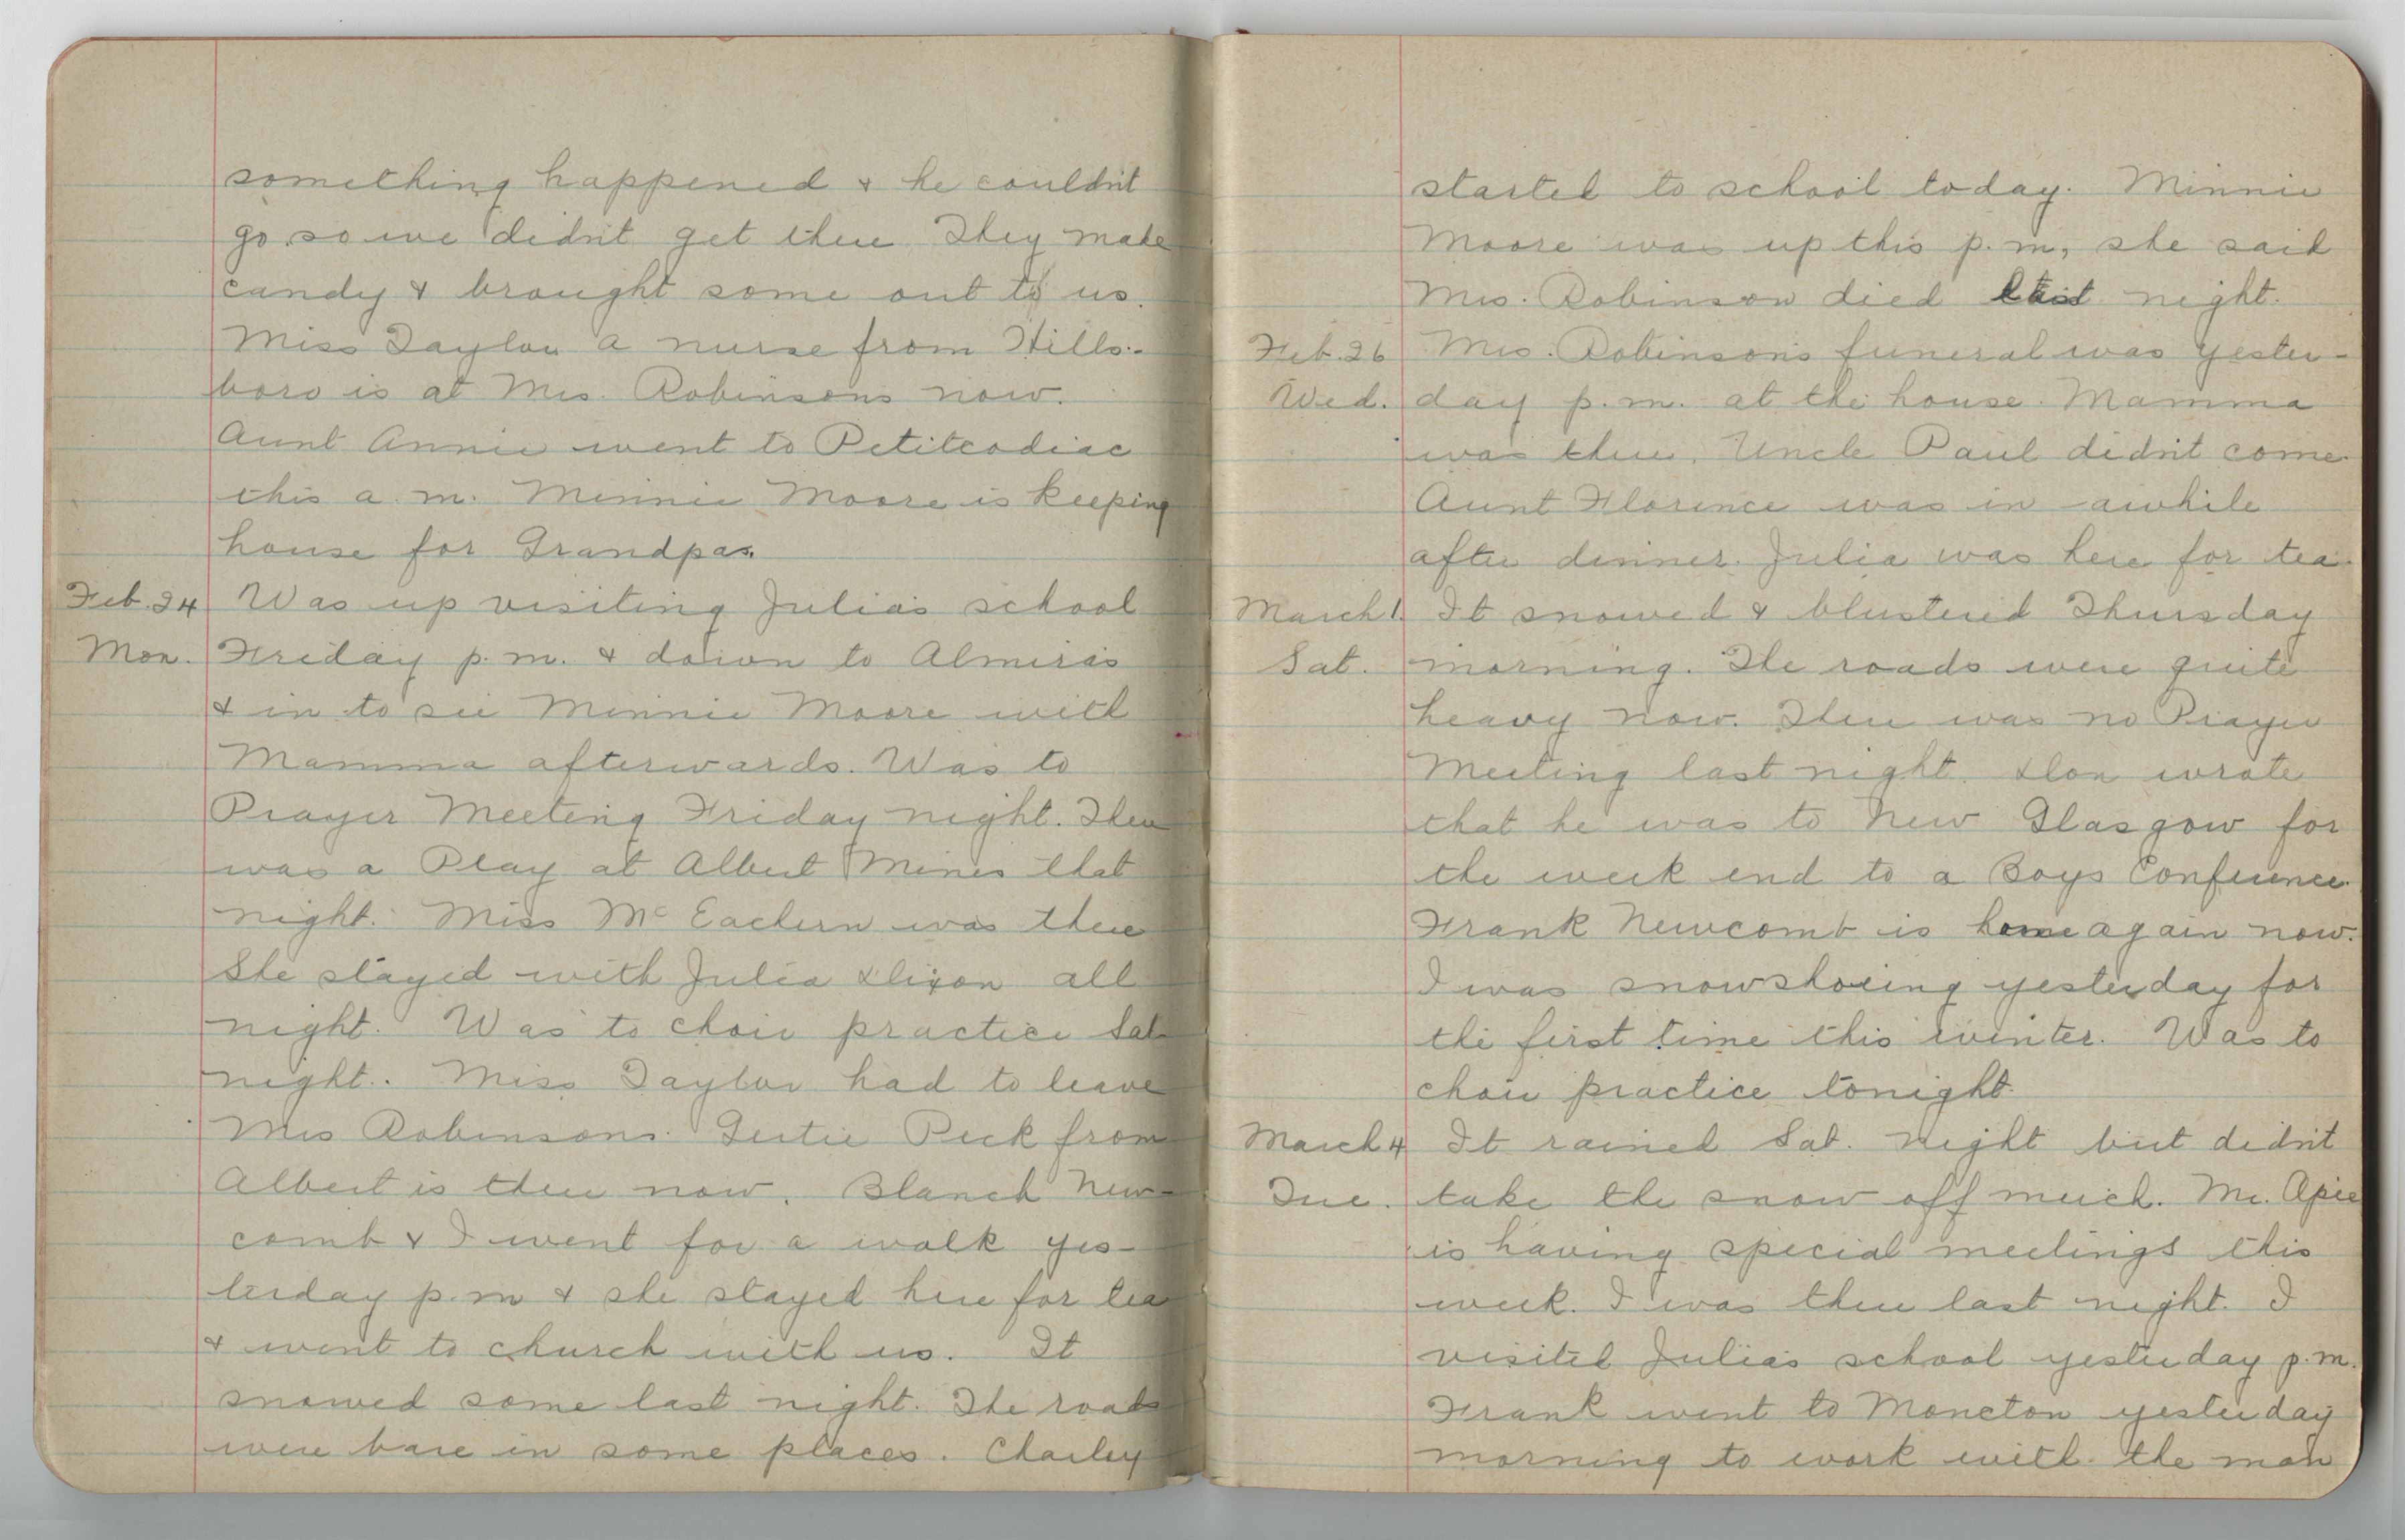 something happened & he couldn't
go so we didn't get there. They made
candy & brought some out to us.
Miss Taylor a nurse from Hills-
boro is at Mrs. Robinsons now.
Aunt Annie went to Petitcodiac
this a.m. Minnie Moore is keeping
house for Grandpas.
Feb. 24 Was up visiting Julia's school
Mon. Friday p.m. & down to Almira's
& in to see Minnie Moore with
Mamma afterwards. Was to
Prayer Meeting Friday night. There
was a Play at Albert Mines that
night. Miss McEachern was there
She stayed with Julia Dixon all
night. Was to choir practice Sat
night. Miss Taylor had to leave
Mrs Robinsons. Gertie Peck from
Albert is there now. Blanch New-
comb & I went for a walk yes-
terday p.m & she stayed here for tea
& went to church with us. It
snowed some last night. The roads
were bare in some places. Charley
started to school today. Minnie
Moore was up this p.m, she said
Mrs. Robinson died last night.
Feb. 26 Mrs. Robinson's funeral was yester-
Wed. day p.m. at the house. Mamma
was there. Uncle Paul didn't come.
Aunt Florence was in awhile
after dinner. Julia was here for tea.
March 1. It snowed & blustered Thursday
Sat. morning. The roads were quite
heavy now. There was no Prayer
Meeting last night. Don wrote
that he was to New Glasgow for
the week end to a Boys Conference.
Frank Newcomb is home again now.
I was snowshoeing yesterday for
the first time this winter. Was to
choir practice tonight.
March 4 It rained Sat. night but didn't
Tue. take the snow off much. Mr. Opie
is having special meetings this
week. I was there last night. I
visited Julia's school yesterday p.m.
Frank went to Moncton yesterday
morning to work with the man